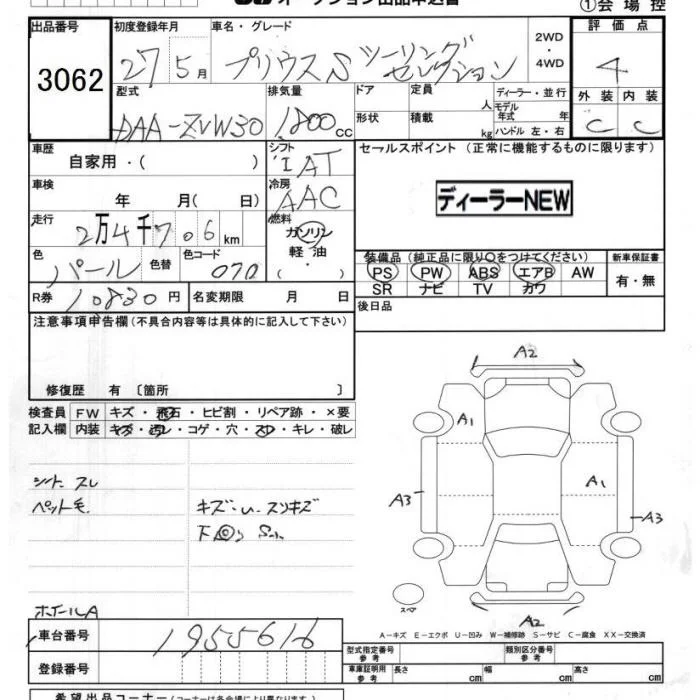 オークション出品申込書 ①会場控
出品番号 初度登録年月 車名・グレード 2WD 評価点
3062 27 5月 プリウスS ツーリングセレクション ・4WD 4
型式 排気量 ドア 定員 ディーラー・並行 外装 内装
DAA-ZVW30 1800 CC 人 モデル年式 年 C C
形状 積載 kg ハンドル 左・右
車歴 シフト セールスポイント (正常に機能するものに限ります)
自家用・( ) IAT
車検 冷房 ディーラーNEW
年 月( 日) AAC
走行 燃料
2万4千706km ガソリン
色 色替 色コード 軽油 装備品(純正品に限り○をつけてください) 新車保証書
パール 070 ( ・ ) PS PW ABS エアB AW 有・無
SR ナビ TV カワ
R券 10830円 名変期限 月 日 後日品
注意事項申告欄(不具合内容等は具体的に記入して下さい)
修復歴 有 〔箇所 〕
検査員 FW キズ・飛石・ヒビ割・リペア跡・×要
記入欄 内装 キズ・汚レ・コゲ・穴・スレ・キレ・破レ
A2
A1
シート スレ A1
ペット毛 キズ・U・スリキズ A3 A3
下
ホイールA スペア
A2
A-キズ E-エクボ U-凹み W-補修跡 S-サビ C-腐食 XX-交換済
車台番号 1955616 型式指定番号 参考 類別区分番号 参考
登録番号 車庫証明用 参考 長さ cm 幅 cm 高さ cm
希望出品コーナー(コーナーは各会場により異なります)